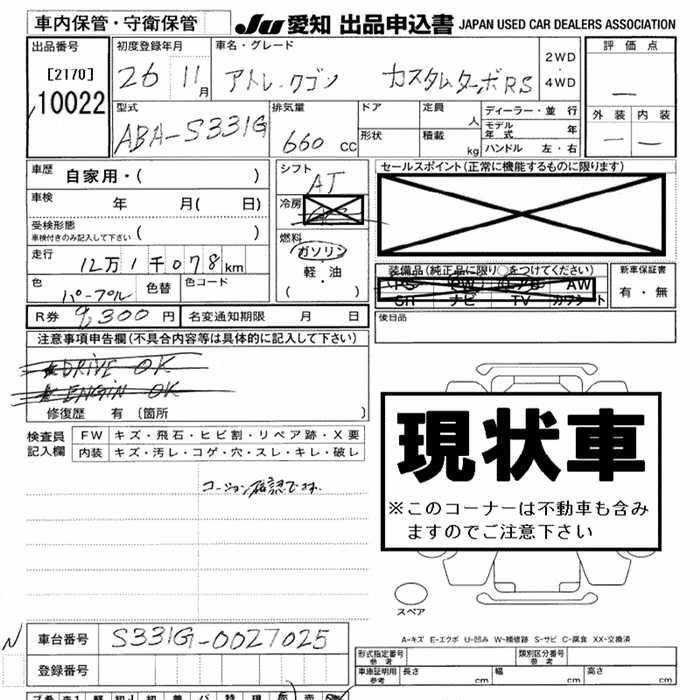 車内保管・守衛保管 JU 愛知 出品申込書 JAPAN USED CAR DEALERS ASSOCIATION
出品番号 初度登録年月 車名・グレード 2WD・4WD 評価点
[2170] 26 11月 アトレ.ワゴン カスタムターボRS
10022 型式 排気量 ドア 定員 人 ディーラー・並行 外装 内装
ABA-S331G 660 cc 形状 積載 kg モデル年式 年
ハンドル 左・右
車歴 自家用・( ) シフト AT セールスポイント(正常に機能するものに限ります)
車検 年 月( 日) 冷房
受検形態 車検付きのみ記入して下さい ( ) 燃料
走行 12万1千078km ガソリン・軽・油 ( ) 装備品(純正品に限り○をつけてください) 新車保証書
色 パープル 色替 色コード PS PW AW 有・無
SR ナビ TV カワシート
R券 9,300円 名変通知期限 月 日 後日品
注意事項申告欄(不具合内容等は具体的に記入して下さい)
★DRIVE OK
★ENGIN OK
修復歴 有 〔箇所 〕
検査員記入欄 FW キズ・飛石・ヒビ割・リペア跡・X要
内装 キズ・汚レ・コゲ・穴・スレ・キレ・破レ
現状車
※このコーナーは不動車も含み
ますのでご注意下さい
スペア
A-キズ E-エクボ U-凹み W-補修跡 S-サビ C-腐食 XX-交換済
N 車台番号 S331G-0027025 形式指定番号 参考 類別区分番号 参考
登録番号 車庫証明用 参考 長さ cm 幅 cm 高さ cm